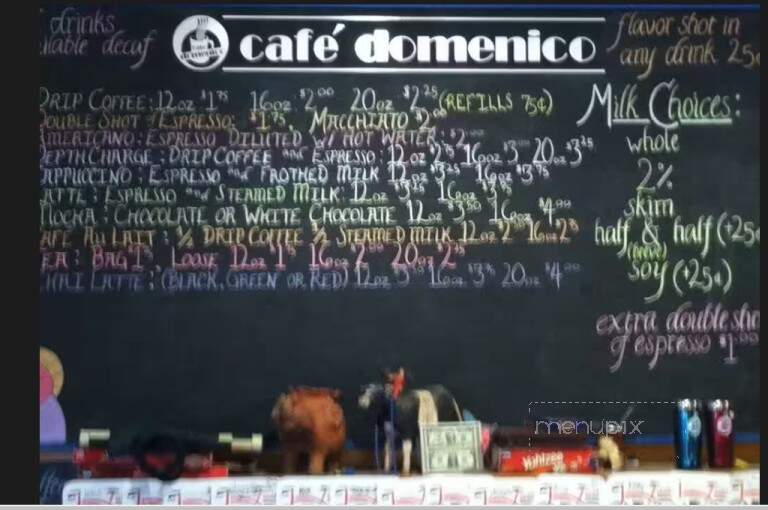 drinks
decaf
café domenico
flavor shot in
any drink 25¢
DRIP COFFEE: 12oz $1.75 16oz $2.00 20oz $2.25 (REFILLS 75¢)
DOUBLE SHOT of ESPRESSO: $1.75. MACCHIATO $2.00
AMERICANO: ESPRESSO DILUTED W/ HOT WATER: $2
DEPTH CHARGE: DRIP COFFEE and ESPRESSO: 12oz 2.75 16oz $3 20oz $3.25
CAPPUCCINO: ESPRESSO and FROTHED MILK 12oz $3.25 16oz $3.75
LATTE: ESPRESSO and STEAMED MILK: 12oz $3.25 16oz
MOCHA: CHOCOLATE OR WHITE CHOCOLATE 12oz $3.50 16oz $4.00
CAFE AU LAIT: ½ DRIP COFFEE ½ STEAMED MILK 12oz 16oz
TEA: BAG LOOSE 12oz 16oz 20oz
CHAI LATTE: (BLACK, GREEN OR RED) 12oz 16oz 20oz
Milk Choices:
whole
2%
skim
half & half (+25¢
(breve)
soy (+25¢)
extra double sho
of espresso $1.00
menupix
Yahtzee